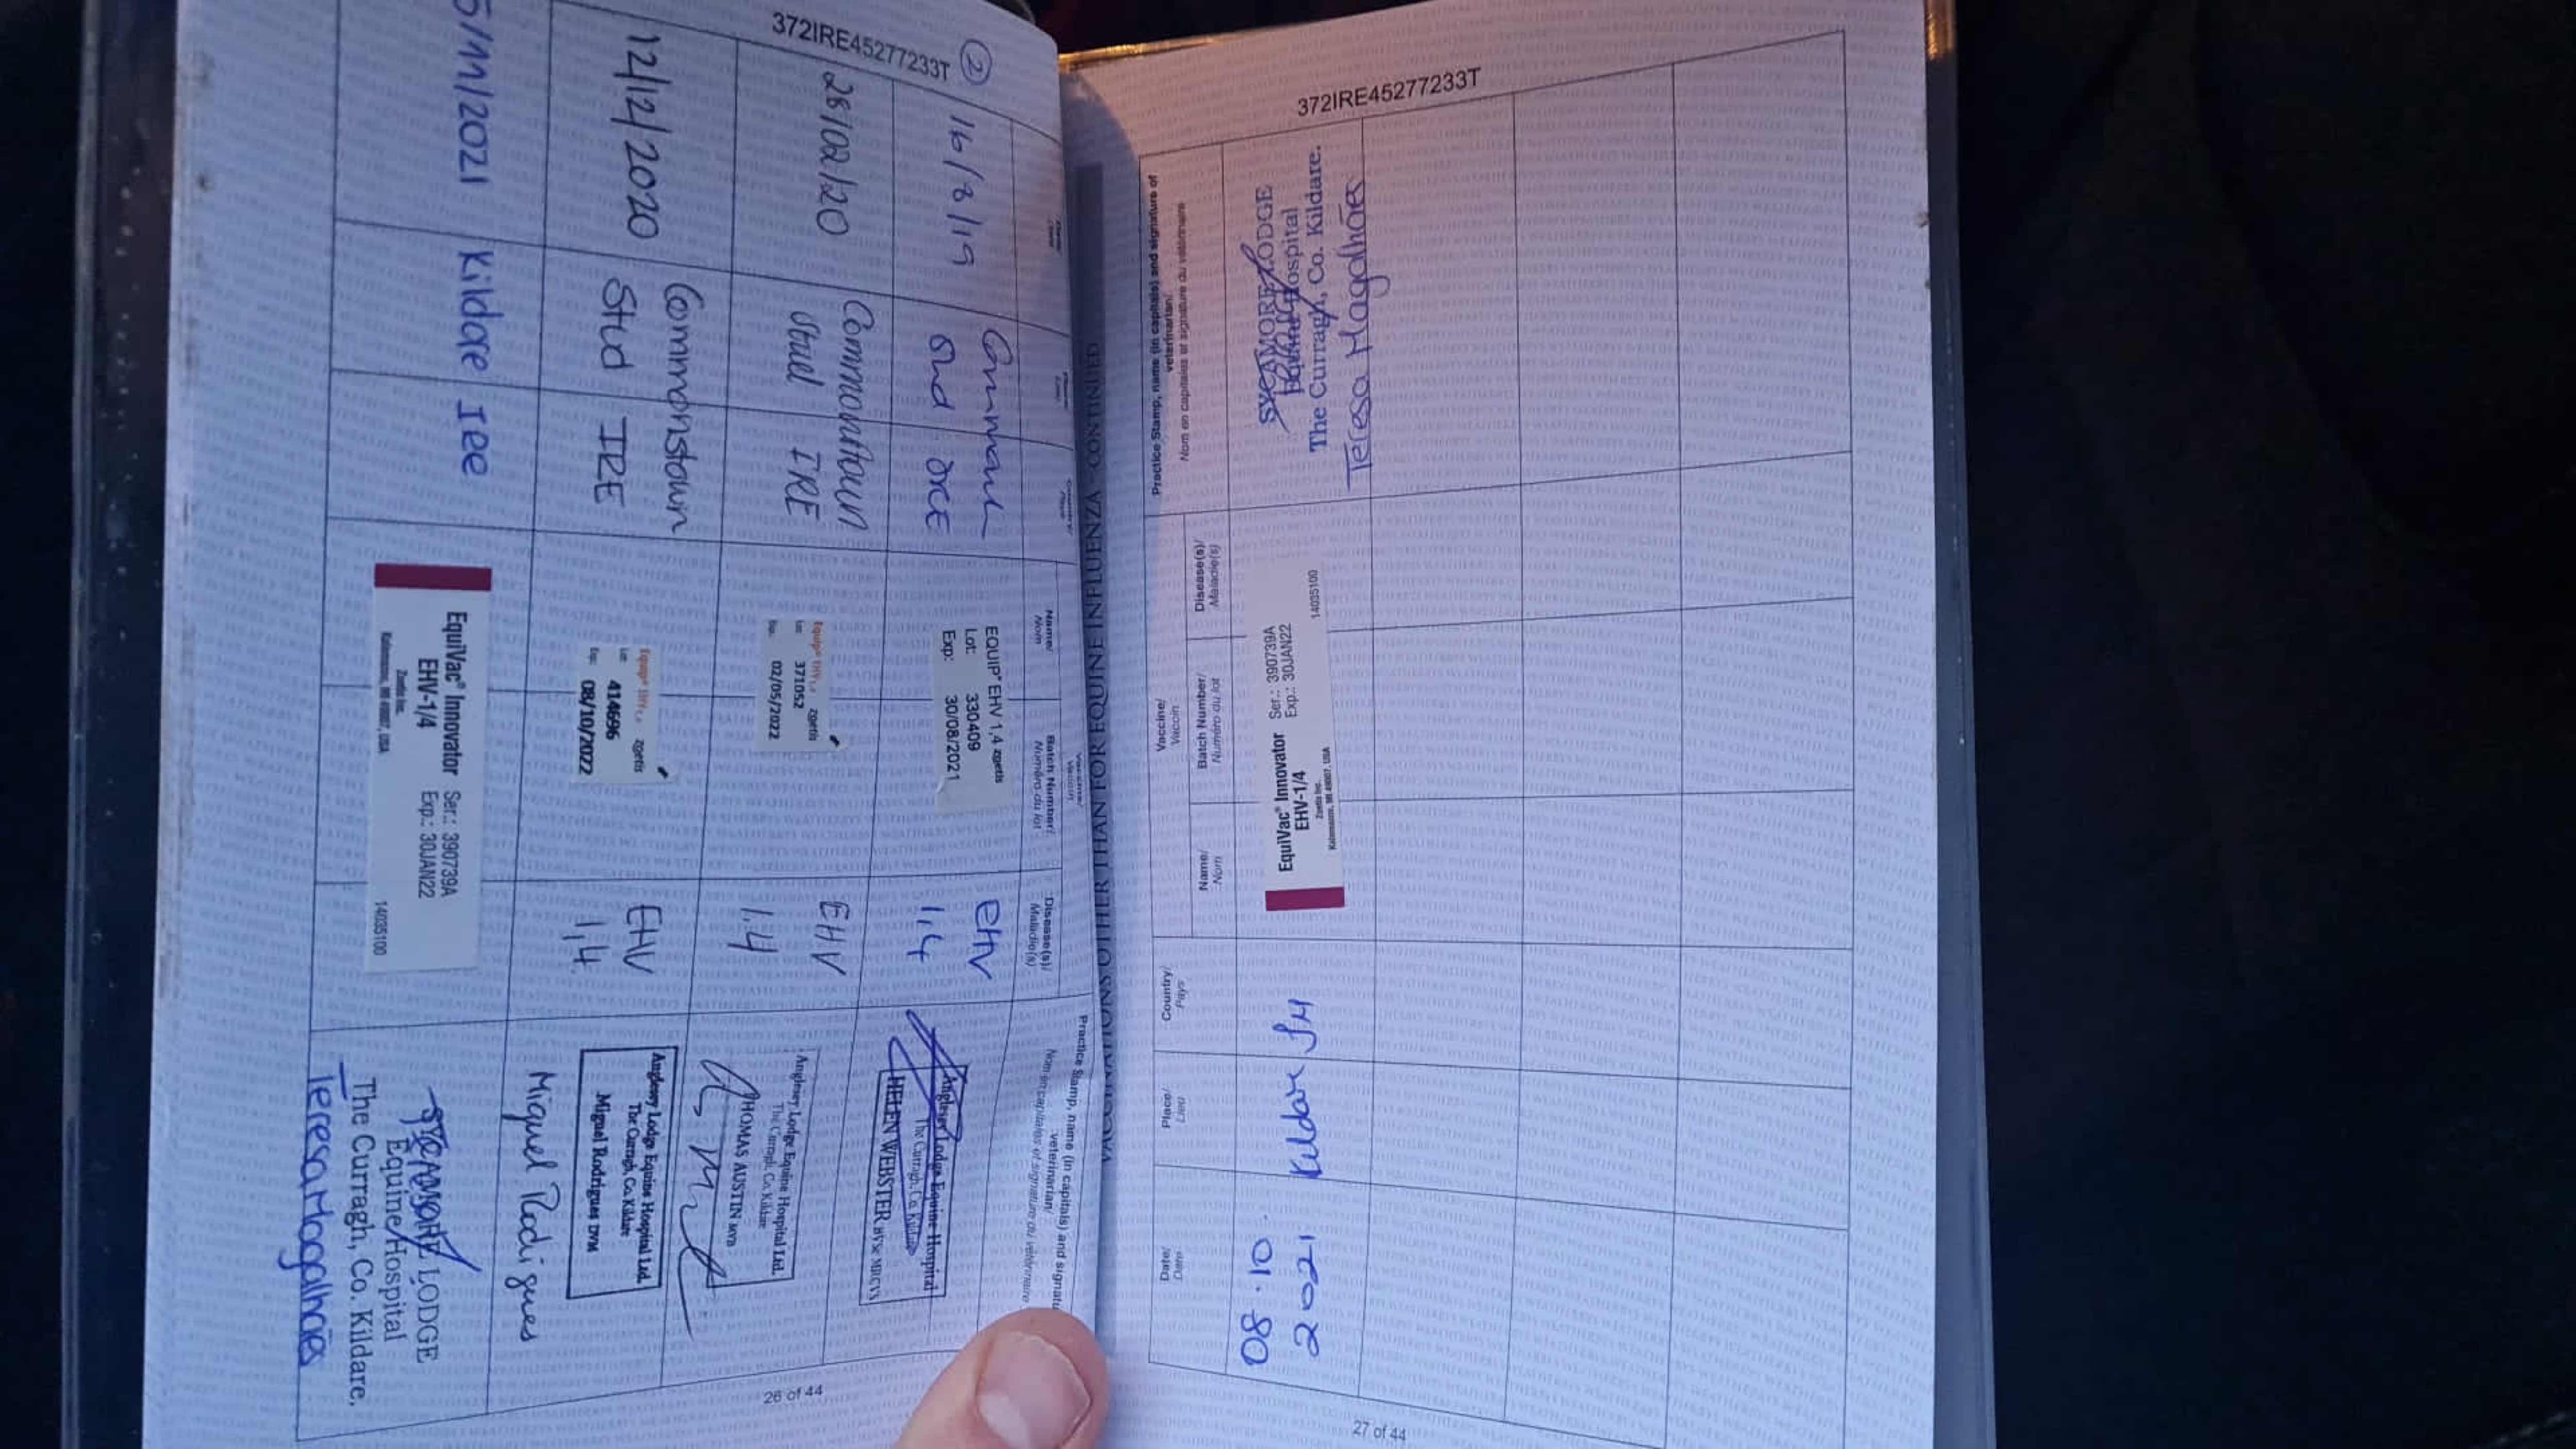 372IRE45277233T
2
VACCINATIONS OTHER THAN FOR EQUINE INFLUENZA CONTINUED
Name/
Nom
Vaccine/
Vaccin
Batch Number/
Numéro du lot
Disease(s)/
Maladie(s)
Practice Stamp, name (in capitals) and signatu
veterinarian/
Nom en capitales et signature du vétérinaire
16/8/19
Stud
EQUIP® EHV 1,4 zoetis
Lot: 330409
Exp: 30/08/2021
EHV
1,4
Anglesey Lodge Equine Hospital
The Curragh, Co. Kildare
HELEN WEBSTER BVSc MRCVS
28/02/20
Commonstown
Stud IRE
Equip® EHV 1,4 zoetis
Lot: 371052
Exp. 02/05/2022
EHV
1.4
Anglesey Lodge Equine Hospital Ltd.
The Curragh, Co. Kildare
THOMAS AUSTIN MVB
12/12/2020
Commonstown
Stud IRE
Equip® EHV 1,4 zoetis
Lot: 414696
Exp: 08/10/2022
EHV
1,4
Anglesey Lodge Equine Hospital Ltd.
The Curragh, Co. Kildare
Miguel Rodrigues DVM
Miguel Rodrigues
5/11/2021
Kildare IRE
EquiVac® Innovator Ser.: 390739A
EHV-1/4 Exp.: 30JAN22
Zoetis Inc.
Kalamazoo, MI 49007, USA
14035100
SYCAMORE LODGE
Equine Hospital
The Curragh, Co. Kildare.
Teresa Magalhães
26 of 44
372IRE45277233T
Date/
Date
Place/
Lieu
Country/
Pays
Vaccine/
Vaccin
Name/
Nom
Batch Number/
Numéro du lot
Disease(s)/
Maladie(s)
Practice Stamp, name (in capitals) and signature of
veterinarian/
Nom en capitales et signature du vétérinaire
08.10.
2021
Kildare
EquiVac® Innovator Ser.: 390739A
EHV-1/4 Exp.: 30JAN22
Zoetis Inc.
Kalamazoo, MI 49007, USA
14035100
SYCAMORE LODGE
Equine Hospital
The Curragh, Co. Kildare.
Teresa Magalhães
27 of 44